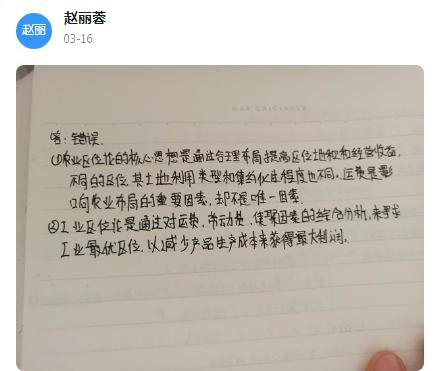 赵丽
赵丽蓉
03-16
答：错误.
①农业区位论的核心思想是通过合理布局提高区位地租和经营收益,
不同的区位,其土地利用类型和集约化生程度也不同。运费是影
响农业布局的重要因素,却不是唯一因素.
②工业区位论是通过对运费,劳动费,集聚因素的综合分析,来寻求
工业最优区位.以减少产品生产成本来获得最大利润.